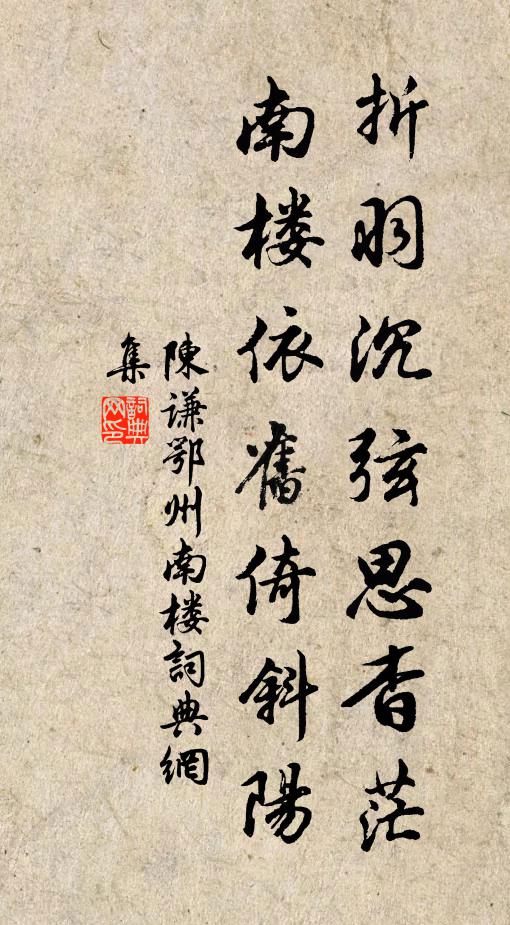 折羽沉弦思杳茫
南楼依舊倚斜陽
陳谦鄂州南楼詞典網
集
詞典
网印